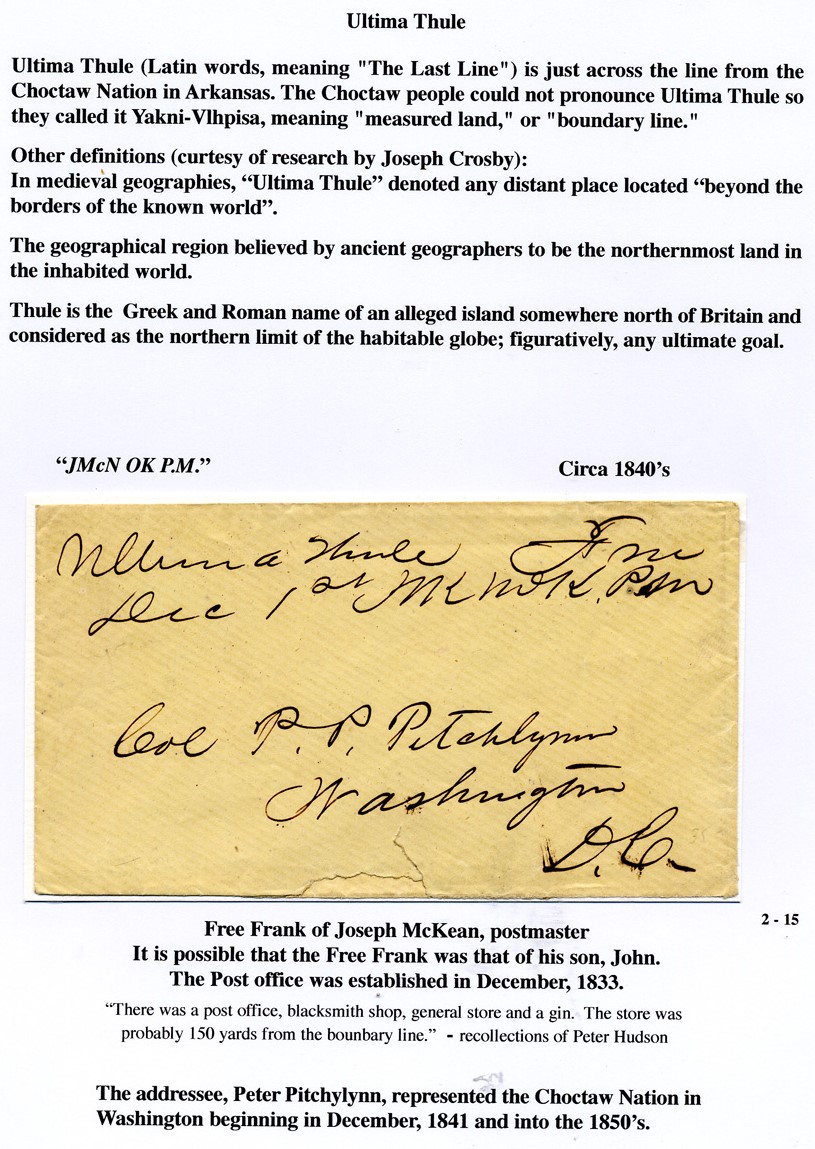 Ultima Thule
Ultima Thule (Latin words, meaning "The Last Line") is just across the line from the
Choctaw Nation in Arkansas. The Choctaw people could not pronounce Ultima Thule so
they called it Yakni-Vlhpisa, meaning "measured land," or "boundary line."
Other definitions (curtesy of research by Joseph Crosby):
In medieval geographies, “Ultima Thule” denoted any distant place located “beyond the
borders of the known world”.
The geographical region believed by ancient geographers to be the northernmost land in
the inhabited world.
Thule is the Greek and Roman name of an alleged island somewhere north of Britain and
considered as the northern limit of the habitable globe; figuratively, any ultimate goal.
“JMcN OK P.M.”
Circa 1840’s
Ultima Thule Free
Dec 1st P.M
Col P. P. Pitchlynn
Washington
D.C.
2 - 15
Free Frank of Joseph McKean, postmaster
It is possible that the Free Frank was that of his son, John.
The Post office was established in December, 1833.
“There was a post office, blacksmith shop, general store and a gin. The store was
probably 150 yards from the bounbary line.” - recollections of Peter Hudson
The addressee, Peter Pitchylynn, represented the Choctaw Nation in
Washington beginning in December, 1841 and into the 1850’s.